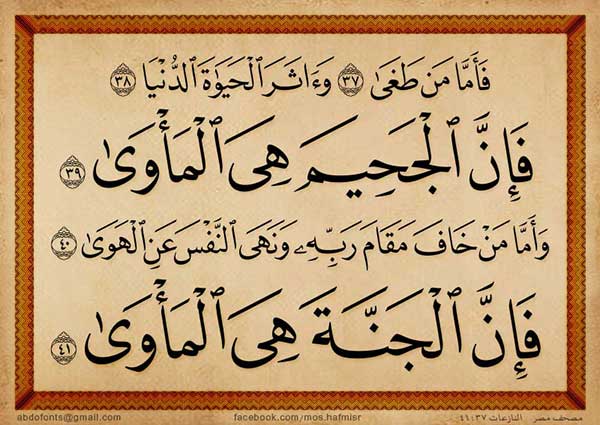 فَأَمَّا مَن طَغَىٰ ٣٧ وَءَاثَرَ ٱلْحَيَوٰةَ ٱلدُّنْيَا ٣٨
فَإِنَّ ٱلْجَحِيمَ هِىَ ٱلْمَأْوَىٰ ٣٩
وَأَمَّا مَنْ خَافَ مَقَامَ رَبِّهِۦ وَنَهَى ٱلنَّفْسَ عَنِ ٱلْهَوَىٰ ٤٠
فَإِنَّ ٱلْجَنَّةَ هِىَ ٱلْمَأْوَىٰ ٤١
مصحف مصر النازعات ٣٧:٤١ facebook.com/mos.hafmisr abdofonts@gmail.com